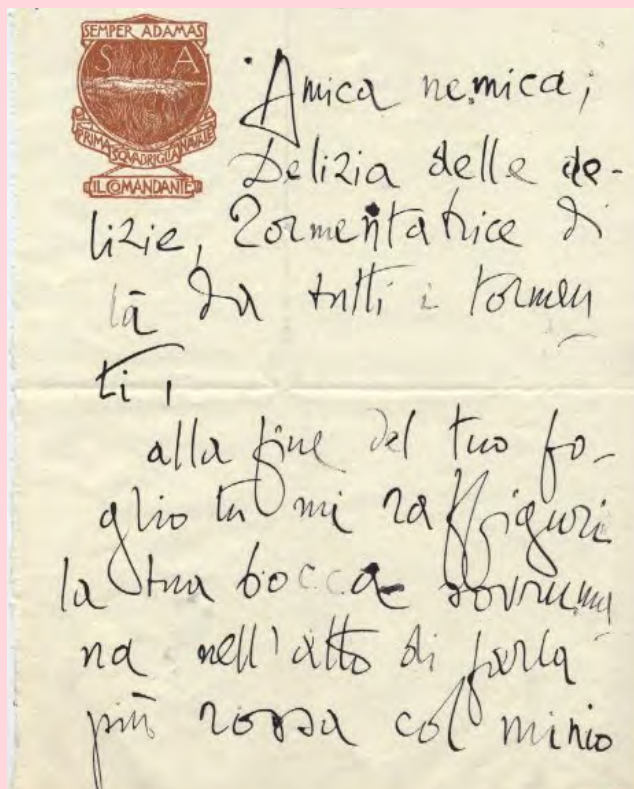 SEMPER ADAMAS
S A
PRIMA SQVADRIGLIA NAVALE
IL COMANDANTE
Amica nemica,
Delizia delle de-
lizie, Tormentatrice di
là da tutti i tormen
ti,
alla fine del tuo fo-
glio tu mi raffiguri
la tua bocca sovruma
na nell'atto di farla
più rossa col minio